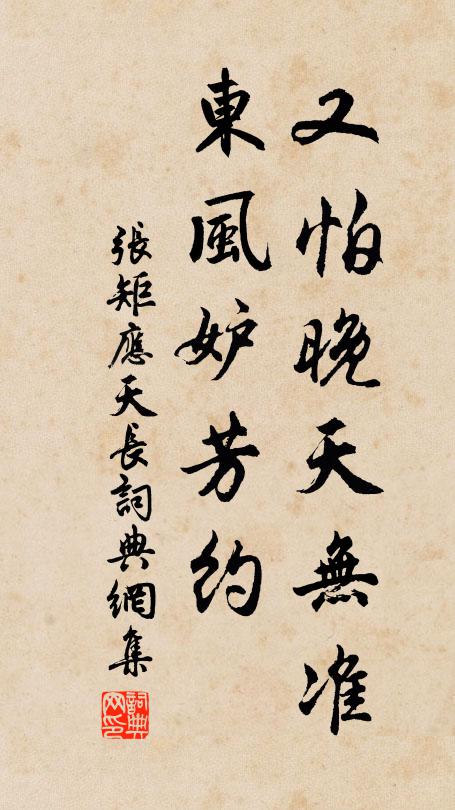 又怕晚天無准
東風妒芳約
張矩應天長詞典網集
詞典网印